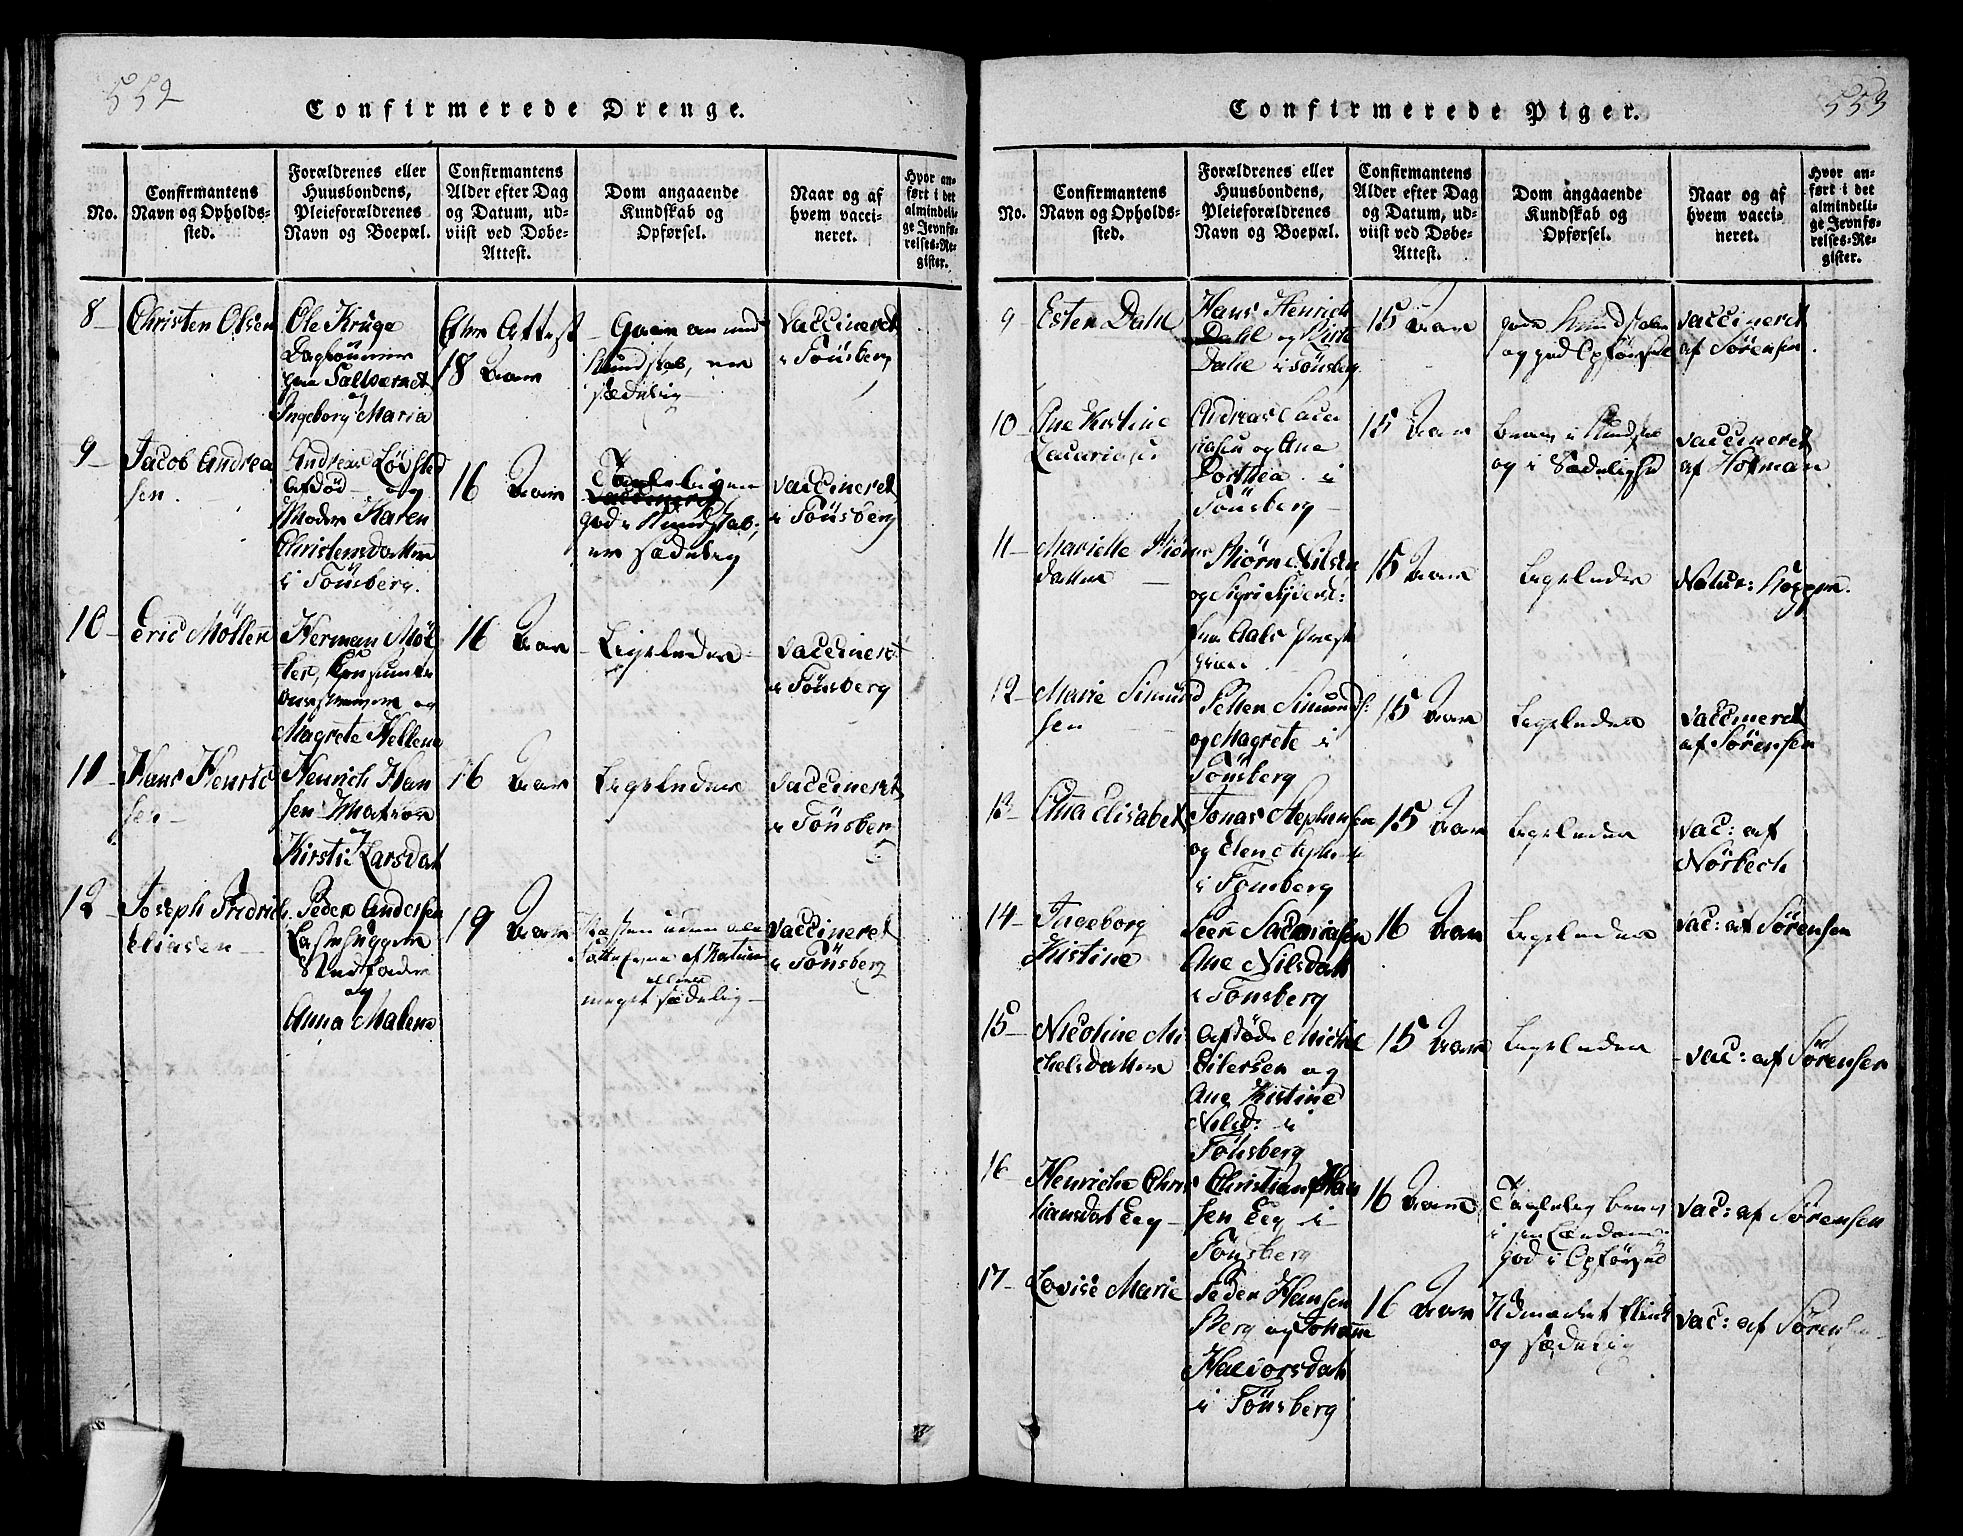 552
Confirmerede Drenge.
No.
Confirmantens
Navn og Opholds-
sted.
Forældrenes eller
Huusbondens,
Pleieforældrenes
Navn og Boepæl.
Confirmantens
Alder efter Dag
og Datum, ud-
viist ved Døbe-
Attest.
Dom angaaende
Kundskab og
Opførsel.
Naar og af
hvem vacci-
neret.
Hvor an-
ført i det
almindeli-
ge Jevnfø-
relses-Re-
gister.
8 -
Christen Olsen
Ole Kruge
Saltværnet
og
Ingeborg Maria
Efter Attest
18 Aar
Kundskab, er
sædelig
Vaccineret
i Tönsberg
9 -
Jacob Andrea
sen.
Andreas Lövsted
afdød - og
Moder Karen
Christensdatter
i Tönsberg.
16 Aar
Taalelig
god i Kundskab,
er sædelig
Vaccineret
i Tönsberg
10 -
Eric Möller
Herman Möl
ler, Consum
og
Magrete Hellene
16 Aar
Ligeledes
Vaccineret
i Tönsberg
11 -
Hans Henric
sen -
Henrich Han
sen Matros
og
Kirstie Larsdat
16 Aar
Ligeledes
Vaccineret
i Tönsberg
12 -
Joseph Fridrich
Eliasen -
Peder Andersen
Stedfader
og
Anna Malene
19 Aar
Næsten uden al
af Naturen
meget sædelig -
Vaccineret
i Tönsberg
553
Confirmerede Piger.
No.
Confirmantens
Navn og Opholds-
sted.
Forældrenes eller
Huusbondens,
Pleieforældrenes
Navn og Boepæl.
Confirmantens
Alder efter Dag
og Datum, ud-
viist ved Døbe-
Attest.
Dom angaaende
Kundskab og
Opførsel.
Naar og af
hvem vacci-
neret.
Hvor an-
ført i det
almindeli-
ge Jevnfø-
relses-Re-
gister.
9
Ester Dahl
Hans Henrich
Dahl og Birte
Dahl i Tönsberg
15 Aar
gode Kundskaber
og god Opførsel
Vaccineret
af Sørensen
10 -
Ane Kirstine
Zacariasen
Andreas Zaca
riasen og Ane
Dorthea i
Tönsberg -
15 Aar
i Kundskab
og i Sædelighed
Vaccineret
af Hofman
11 -
Marielle Biörns
datter -
Biörn Nilsen
og Sigri
15 Aar
Ligeledes
Natur: Kopper.
12 -
Marie Simund
sen
Petter Simunds:
og Magrete i
Tönsberg
15 Aar
Ligeledes
Vaccineret
af Sørensen
13 -
Ana Elisabet
Jonas Stephensen
og Elen Steph
i Tönsberg
15 Aar
Ligeledes
Vac: af
Nörbech
14 -
Ingeborg
Kistine
Peer Sacariasen
Ane Nilsdatt
i Tönsberg
16 Aar
Ligeledes
Vac: af Sørensen
15 -
Nicoline Mi
chelsdatter
Afdöde Michel
Eilersen og
Ane Kistine
Nilsd: i
Tönsberg
15 Aar
Ligeledes
Vac: af Sørensen
16 -
Henriche Chris
tiansdat Eeg -
Christian Han
sen Eeg i
Tönsberg
16 Aar
Taalelig
god i Opførsel
Vac: af Sørensen
17 -
Lovise Marie
Peder Hansen
Berg og Johanne
Halvorsdatt
i Tönsberg
16 Aar
Udmærket flink
og sædelig
Vac: af Sørensen